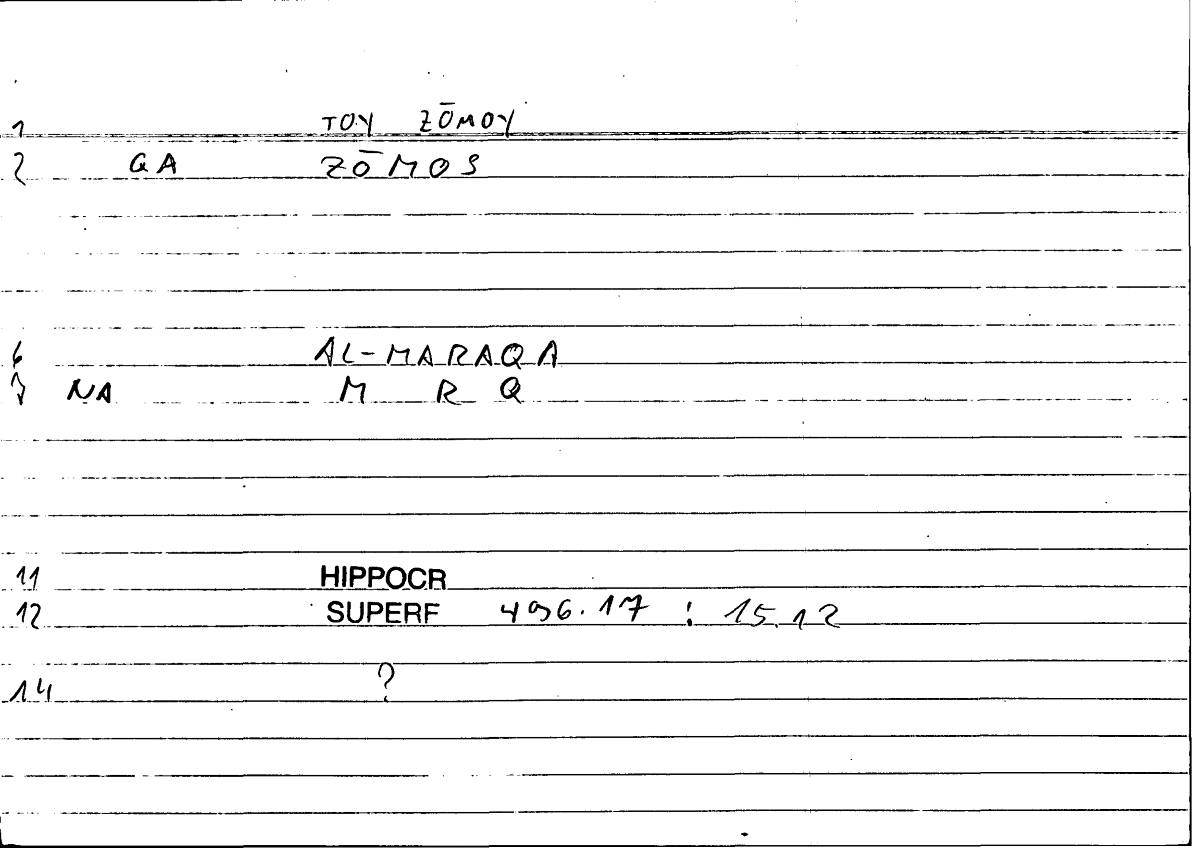 1 TOY ZŌMOY
2 GA ZŌMOS
6 AL-MARAQA
7 NA M R Q
11 HIPPOCR
12 SUPERF 496.17 : 15.12
14 ?